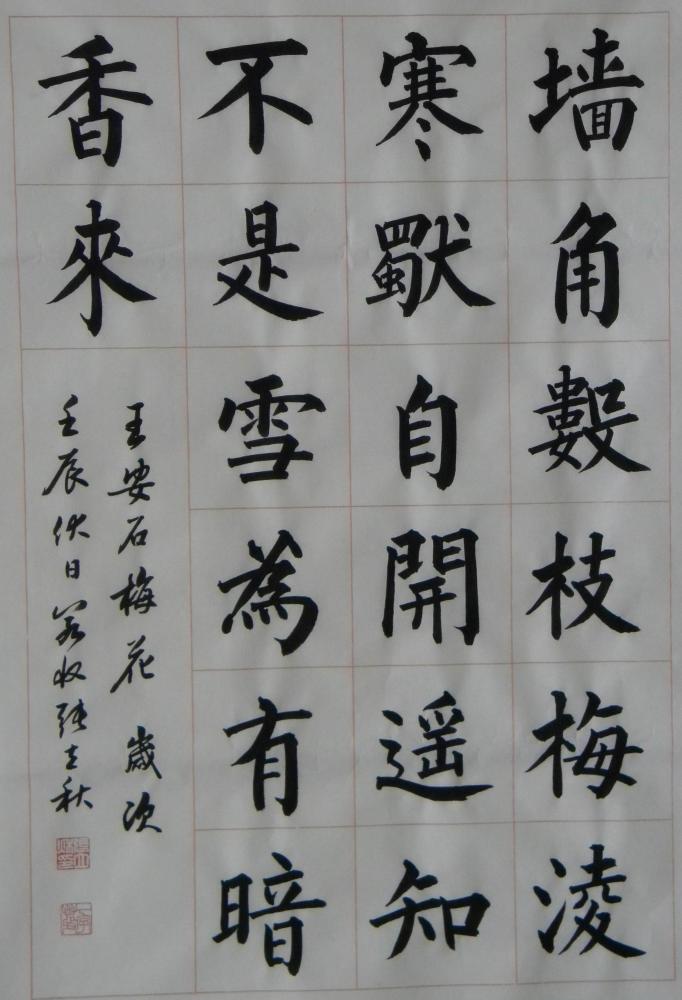 墙角數枝梅淩
寒獨自開遥知
不是雪為有暗
香來
王安石梅花 歲次
壬辰伏日張立秋